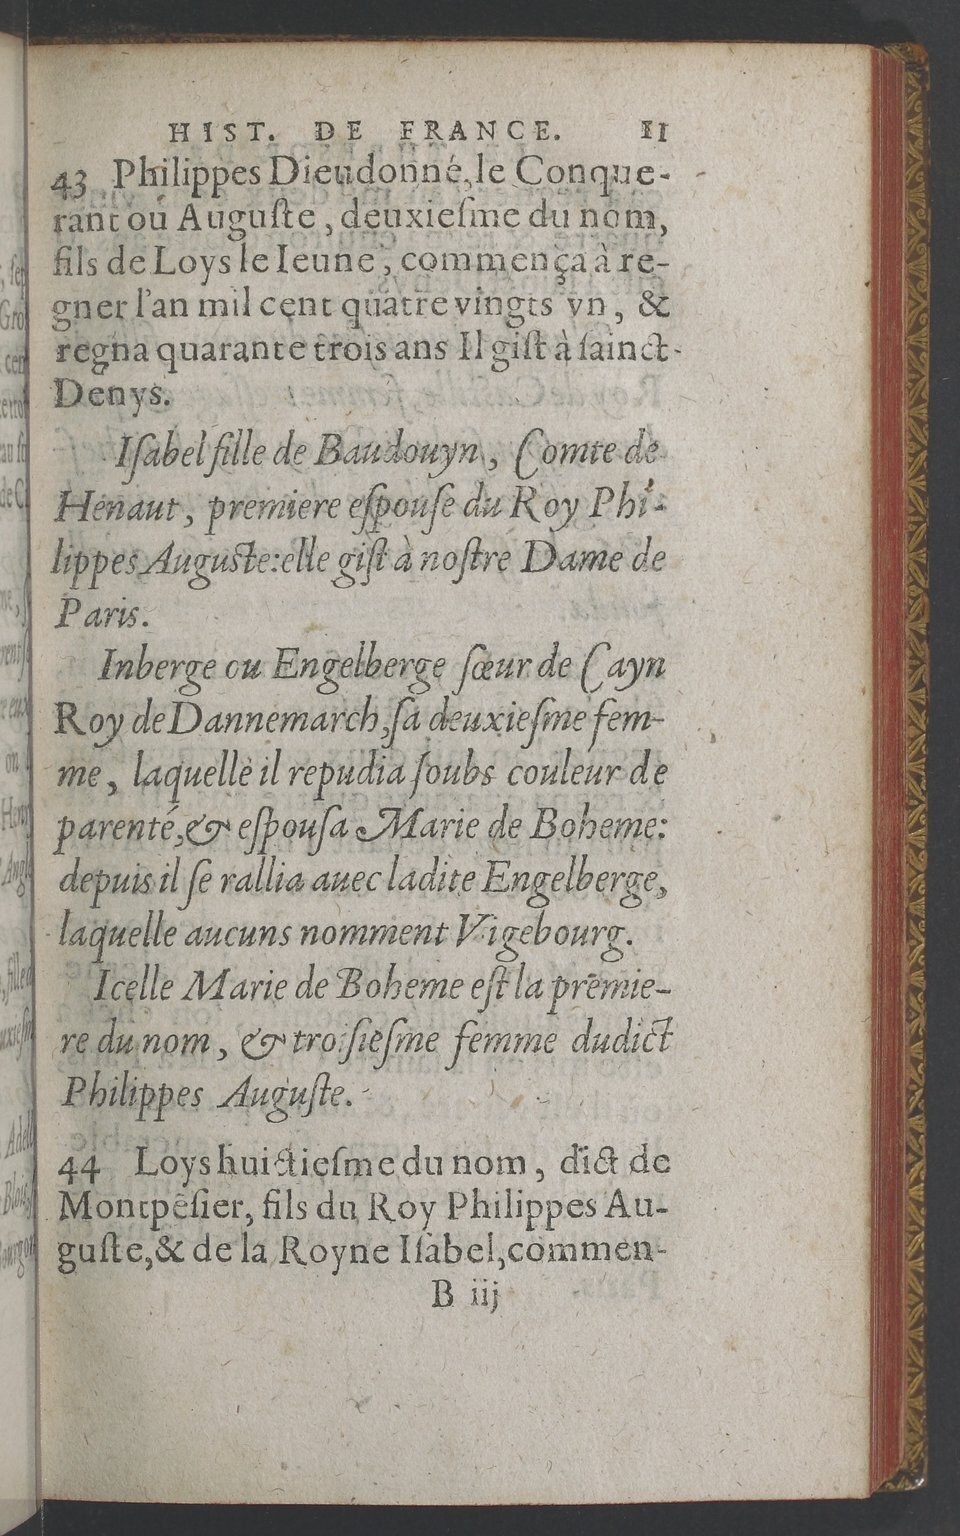 HIST. DE FRANCE. 11
43 Philippes Dieudonné, le Conque-
rant ou Auguſte, deuxieſme du nom,
fils de Loys le Ieune, commença à re-
gner l'an mil cent quatre vingts vn, &
regna quarante trois ans Il giſt à ſainct
Denys.
Iſabel fille de Baudouyn, Comte de
Henaut, premiere eſpouſe du Roy Phi-
lippes Auguste: elle giſt à noſtre Dame de
Paris.
Inberge ou Engelberge ſœur de Cayn
Roy de Dannemarch, ſa deuxieſme fem-
me, laquelle il repudia ſoubs couleur de
parenté, & eſpouſa Marie de Boheme:
depuis il ſe rallia auec ladite Engelberge,
laquelle aucuns nomment Vigebourg.
Icelle Marie de Boheme eſt la premie-
re du nom, & troiſieſme femme dudict
Philippes Auguſte.
44 Loys huictieſme du nom, dict de
Montpeſier, fils du Roy Philippes Au-
guſte, & de la Royne Iſabel, commen-
B iij